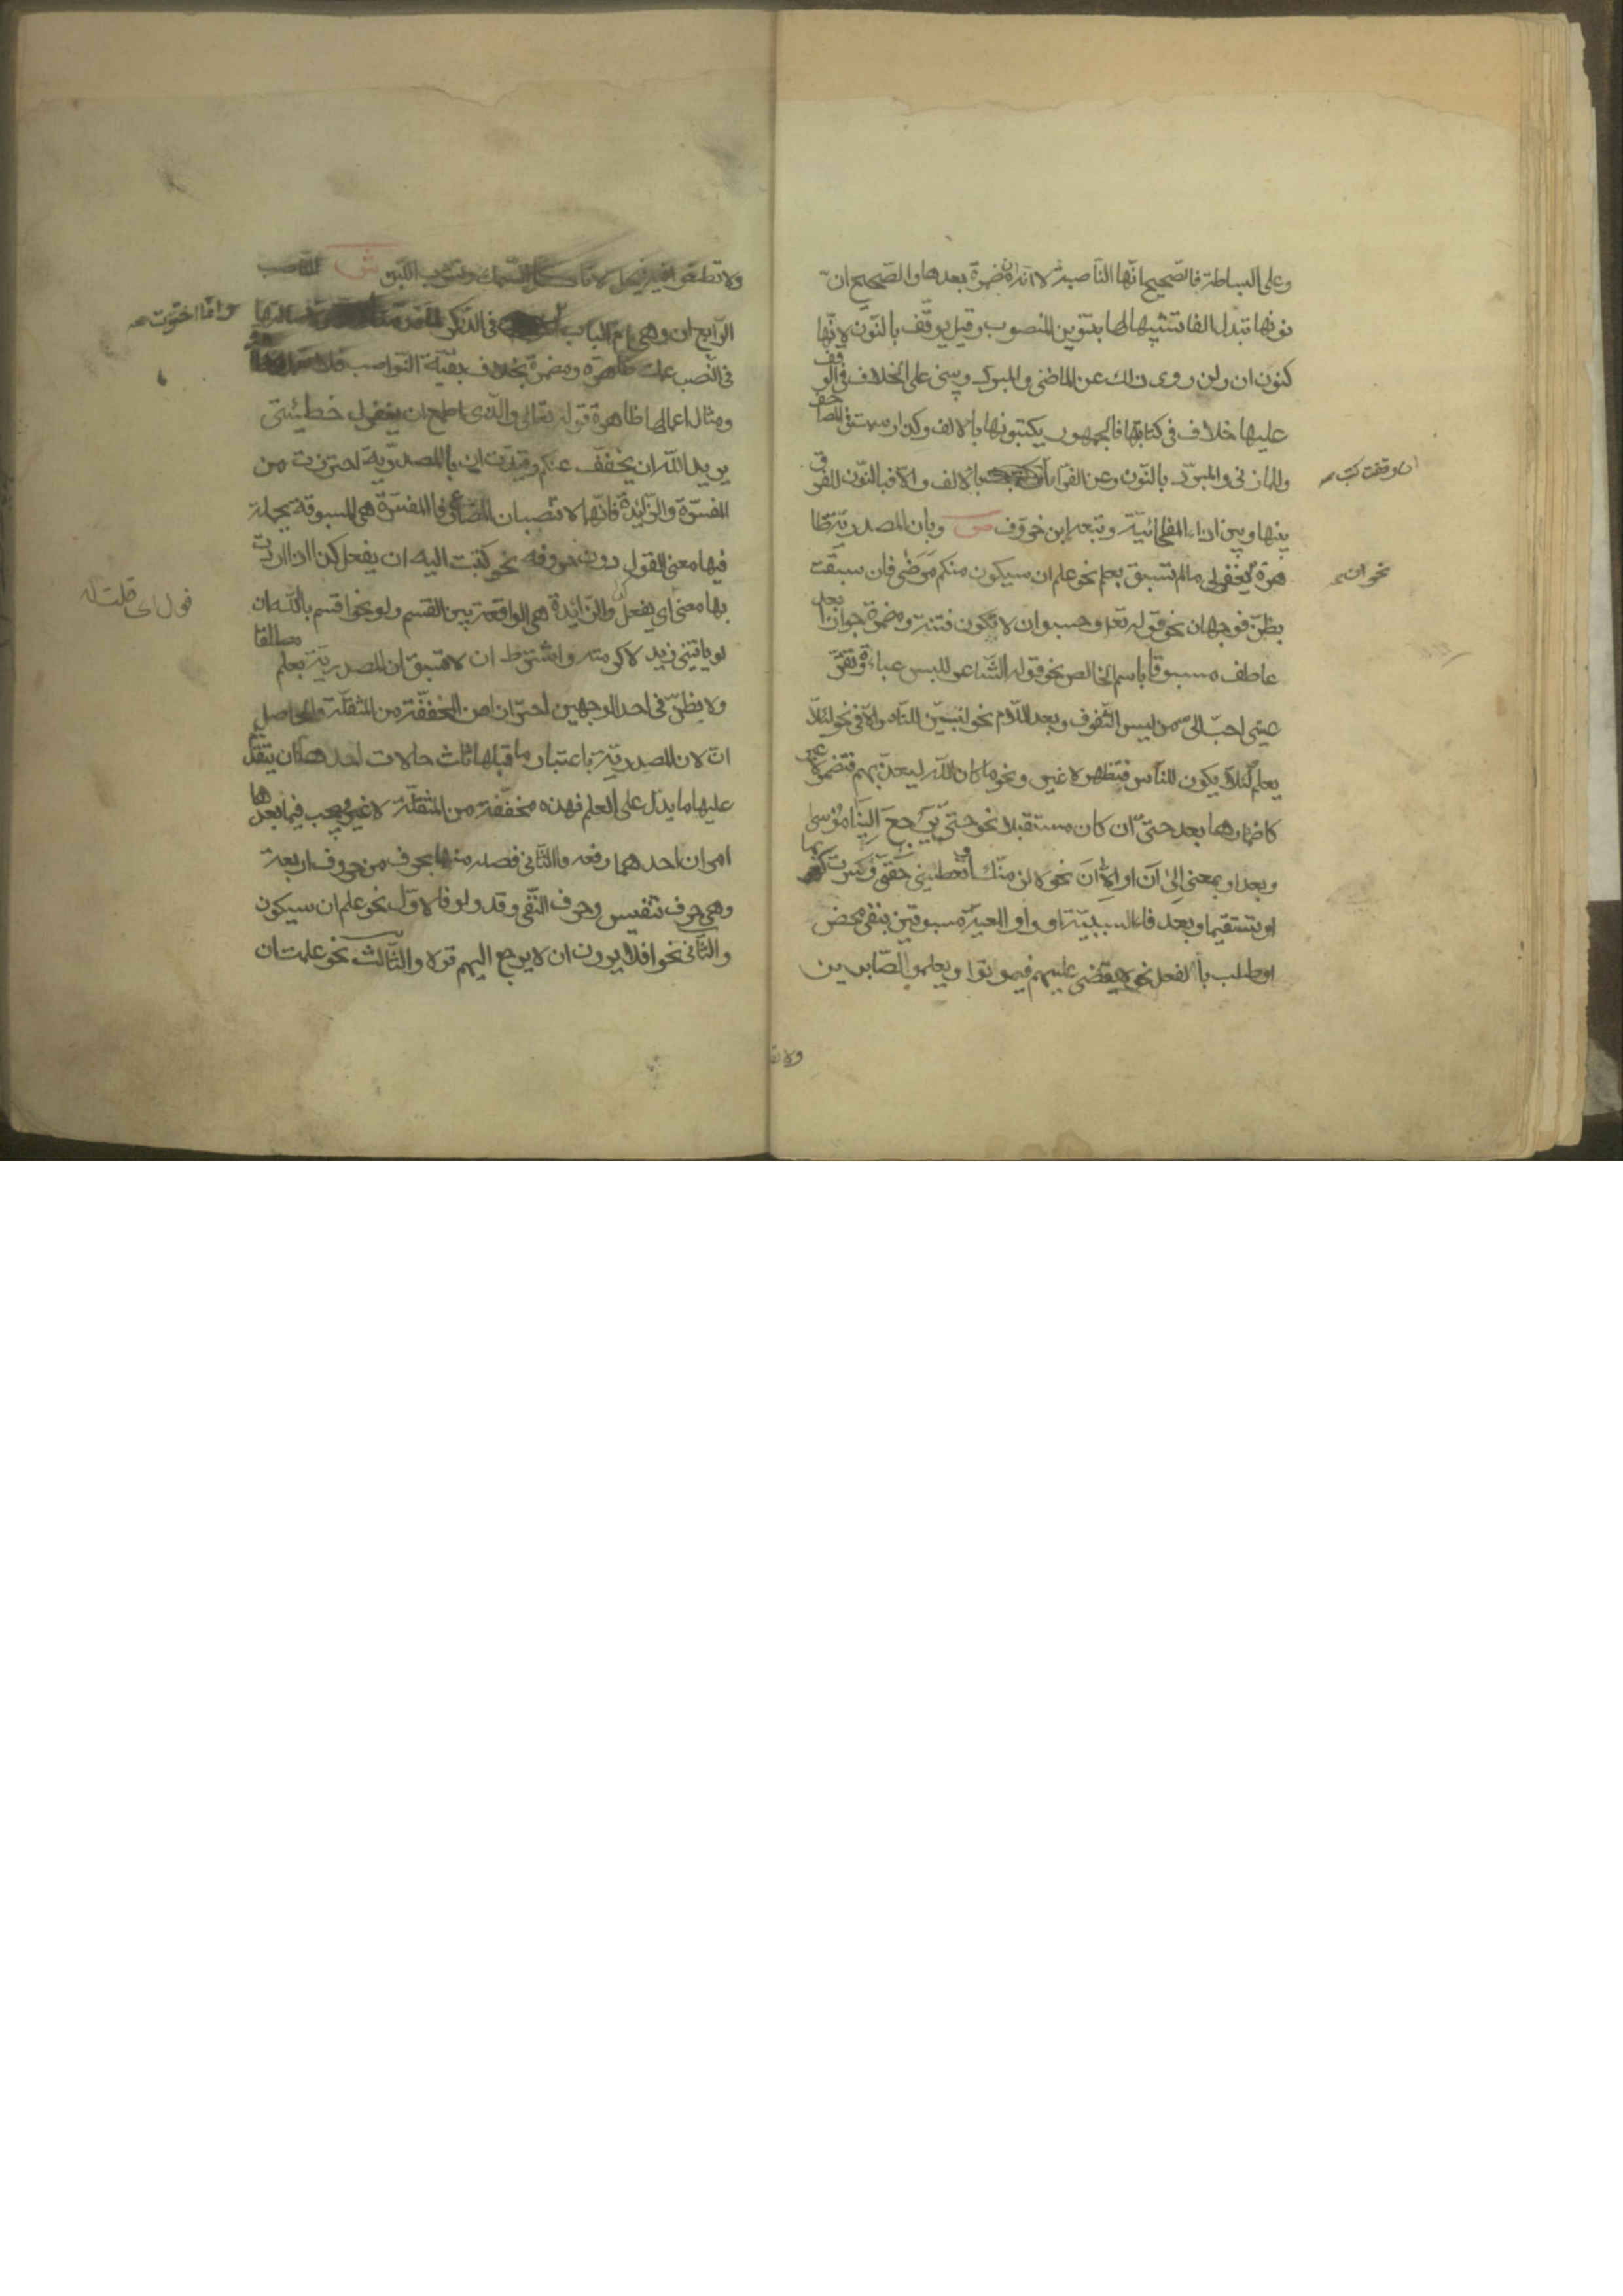 وعلى البساطة فالصحيح انها الناصبة لا ان مضمرة بعدها والصحيح ان
نونها تبدل الفا تشبيها لها بتنوين المنصوب وقيل يوقف بالنون لانها
كنون ان ولن روى ذلك عن المازنى والمبرد وبنى على الخلاف فى الوقف
عليها خلاف فى كتابتها فالجمهور يكتبونها بالالف وكذا رسمت فى المصاحف
والمازنى والمبرد بالنون وعن الفراء بالالف والا فبالنون للفرق
ان وقفت كتبت
بينها وبين اذا المفاجائية وتبعه ابن خروف ص وبان المصدرية ظا
هرة نحو ان يغفر لى مالم تسبق بعلم نحو علم ان سيكون منكم مرضى فان سبقت
نحو ان
بظن فوجهان نحو قوله تعالى وحسبوا ان لا تكون فتنة ومضمرة جوازا بعد
عاطف مسبوق باسم خالص نحو قوله الشاعر للبس عباءة وتقر
عينى احب الى من لبس الشفوف وبعد اللام نحو لتبين للناس الا فى نحو لئلا
يعلم لئلا يكون للناس فتظهر لا غير ونحو ما كان الله ليعذبهم فتضمر لا غير
كاضمارها بعد حتى ان كان مستقبلا نحو حتى يرجع الينا موسى
وبعد او بمعنى الى ان او الا ان نحو لالزمنك او تعطينى حقى وكسرت كعوبها
او تستقيما وبعد فاء السببية او واو المعية مسبوقين بنفى محض
او طلب بالفعل نحو لا يقضى عليهم فيموتوا ويعلم الصابرين
ولا تطغوا فيه فيحل لا تاكل السمك وتشرب اللبن ش الناصب
الرابع ان وهى ام الباب فى الذكر
وانما اخرت
فى النصب عملت ظاهرة ومضمرة بخلاف بقية النواصب فلا
ومثال اعمالها ظاهرة قوله تعالى والذى اطمع ان يغفر لى خطيئتى
يريد الله ان يخفف عنكم وقيدت ان بالمصدرية احترزت من
المفسرة والزائدة فانهما لا تنصبان المضارع فالمفسرة هى المسبوقة بجملة
فيها معنى القول دون حروفه نحو كتبت اليه ان يفعل كذا اذا اردت
بها معنى اى يفعل والزائدة هى الواقعة بين القسم ولو نحو اقسم بالله ان
لو ياتينى زيد لاكرمته واشترط ان لا تسبق ان المصدرية بعلم مطلقا
ولا بظن فى احد الوجهين احترازا من المخففة من المثقلة والحاصل
ان لان المصدرية باعتبار ما قبلها ثلث حالات احدها ان يتقدم
عليها ما يدل على العلم فهذه مخففة من المثقلة لا غير ويجب فيما بعدها
امران احدهما رفعه والثانى فصله منها بحرف من حروف اربعة
وهى حرف تنفيس وحرف النفى وقد ولو فالاول نحو علم ان سيكون
والثانى نحو افلا يرون ان لا يرجع اليهم قولا والثالث نحو علمت ان